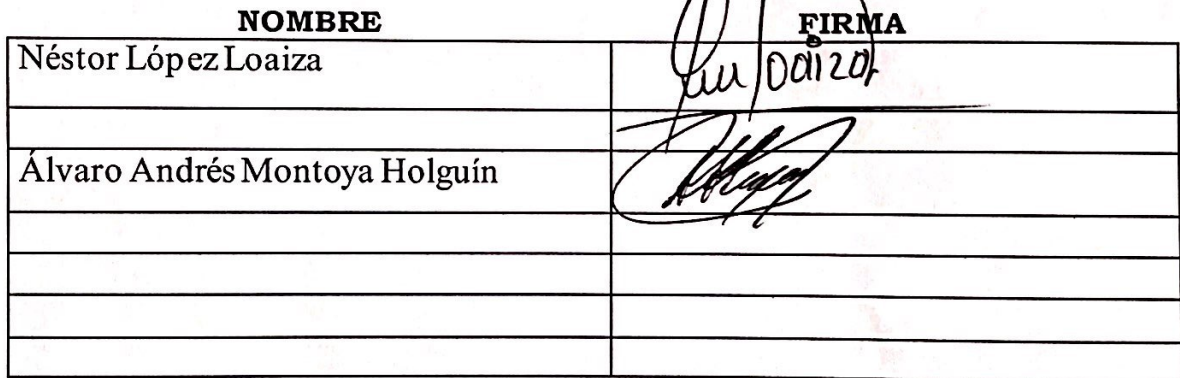 NOMBRE FIRMA
Néstor López Loaiza
Álvaro Andrés Montoya Holguín